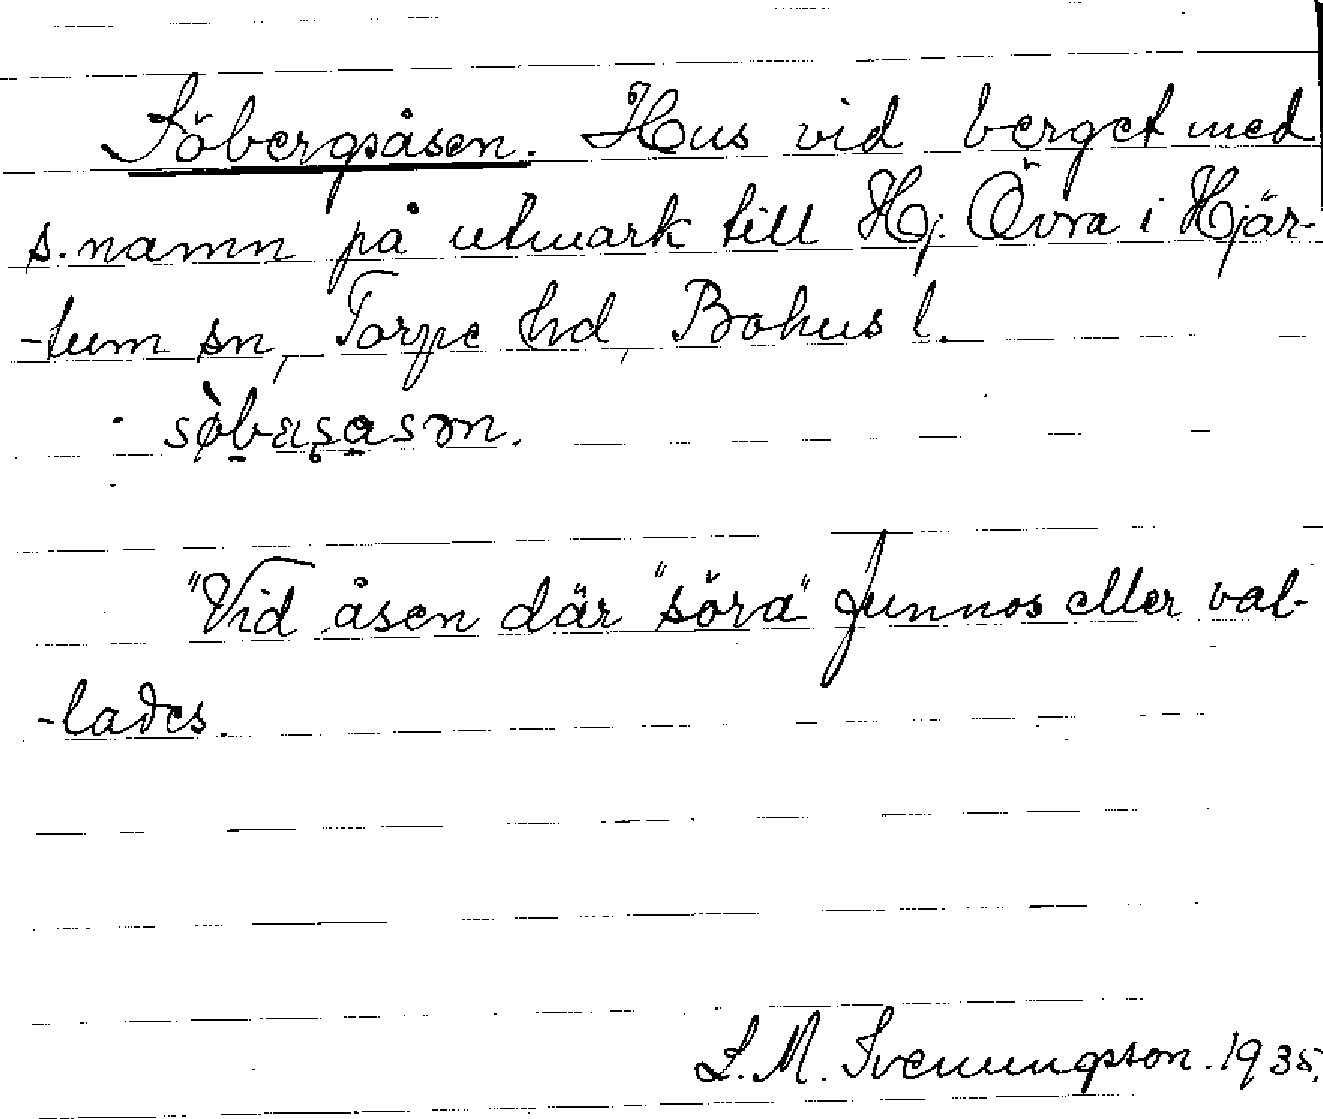 Söbergsåsen. Hus vid berget med
s. namn på utmark till Hj. Övra i Hjär-
-tum sn, Torpe hd, Bohus l.
söbaşasən.
"Vid åsen där "söra" funnos eller val-
-lades.
S. M. Svenungsson. 1935.